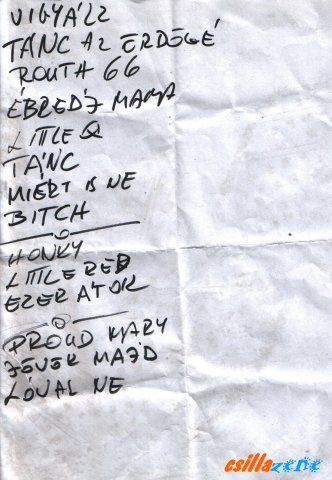 VIGYÁZZ
TÁNC AZ ERDEGÉ
ROUTH 66
ÉBREDJ MAMA
LITTLE Q
TÁNC
MIÉRT IS NE
BITCH
HONKY
LITTLE RED
EZER ÁTOK
PROUD MARY
JÖVÖK MAJD
LÓVAL NE
csillazene